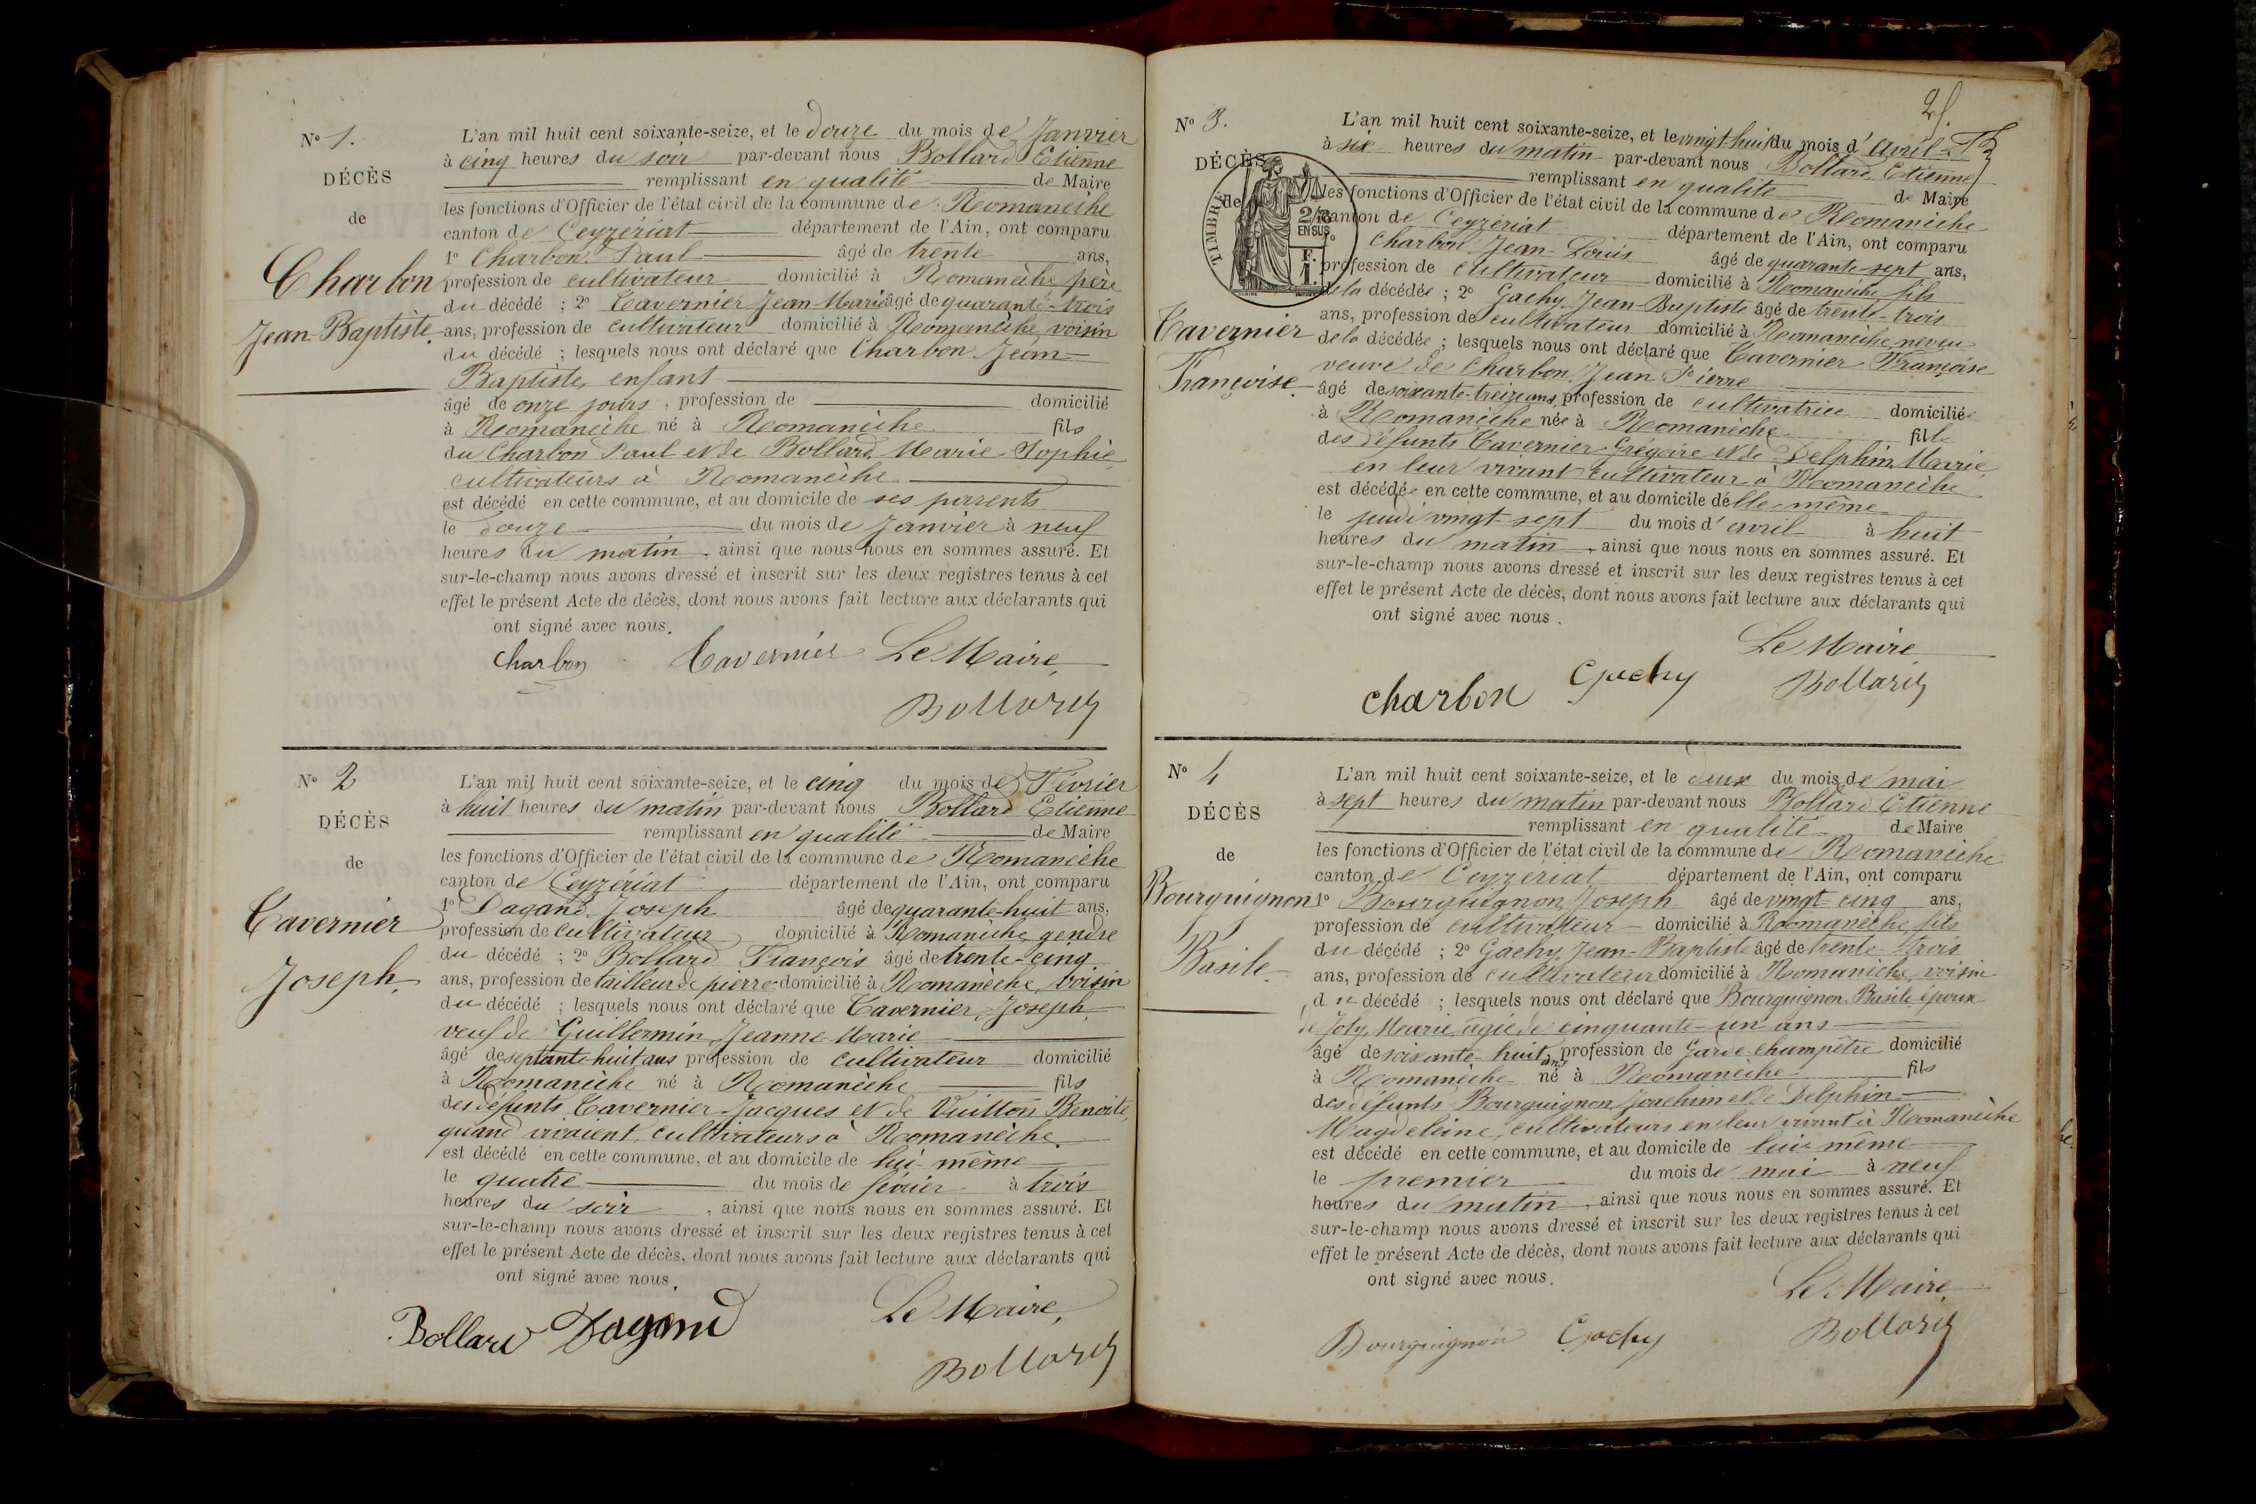 N° 1.
DÉCÈS
de
Charbon
Jean-Baptiste.
L'an mil huit cent soixante-seize, et le douze du mois de Janvier
à cinq heures du soir par-devant nous Bollard Etienne
remplissant en qualité de Maire
les fonctions d'Officier de l'état civil de la commune de Romanèche
canton de Ceyzériat département de l'Ain, ont comparu
1° Charbon Paul âgé de trente ans,
profession de cultivateur domicilié à Romanèche père
du décédé ; 2° Tavernier Jean-Marie âgé de quarante-trois
ans, profession de cultivateur domicilié à Romanèche, voisin
du décédé ; lesquels nous ont déclaré que Charbon Jean-
Baptiste, enfant
âgé de onze jours, profession de domicilié
à Romanèche né à Romanèche fils
du Charbon Paul et de Bollard Marie-Sophie
cultivateurs à Romanèche
est décédé en cette commune, et au domicile de ses parrents
le douze du mois de Janvier à neuf
heures du matin, ainsi que nous nous en sommes assuré. Et
sur-le-champ nous avons dressé et inscrit sur les deux registres tenus à cet
effet le présent Acte de décès, dont nous avons fait lecture aux déclarants qui
ont signé avec nous.
Charbon Tavernier Le Maire,
Bollard
N° 2
DÉCÈS
de
Tavernier
Joseph.
L'an mil huit cent soixante-seize, et le cinq du mois de Février
à huit heures du matin par-devant nous Bollard Etienne
remplissant en qualité de Maire
les fonctions d'Officier de l'état civil de la commune de Romanèche
canton de Ceyzériat département de l'Ain, ont comparu
1° Dagand Joseph âgé de quarante-huit ans,
profession de cultivateur domicilié à Romanèche, gendre
du décédé ; 2° Bollard François âgé de trente-cinq
ans, profession de tailleur de pierre domicilié à Romanèche, voisin
du décédé ; lesquels nous ont déclaré que Tavernier, Joseph
veuf de Guillermin, Jeanne-Marie
âgé de septante huit ans profession de cultivateur domicilié
à Romanèche né à Romanèche fils
des défunts Tavernier Jacques et de Vuitton Benoite,
quand vivaient, cultivateurs à Romanèche.
est décédé en cette commune, et au domicile de lui-même
le quatre du mois de février à trois
heures du soir, ainsi que nous nous en sommes assuré. Et
sur-le-champ nous avons dressé et inscrit sur les deux registres tenus à cet
effet le présent Acte de décès, dont nous avons fait lecture aux déclarants qui
ont signé avec nous.
Bollard Dagand Le Maire,
Bollard
25.
N° 3.
DÉCÈS
de
TIMBRE
2/10
EN SUS
F.
1.
Tavernier
Françoise.
L'an mil huit cent soixante-seize, et le vingt-huit du mois d'Avril
à six heures du matin par-devant nous Bollard Etienne
remplissant en qualité de Maire
les fonctions d'Officier de l'état civil de la commune de Romanèche
canton de Ceyzériat département de l'Ain, ont comparu
1° Charbon Jean-Louis âgé de quarante-sept ans,
profession de cultivateur domicilié à Romanèche fils
de la décédée ; 2° Gachy Jean-Baptiste âgé de trente-trois
ans, profession de cultivateur domicilié à Romanèche, neveu
de la décédée ; lesquels nous ont déclaré que Tavernier Françoise
veuve de Charbon Jean Pierre
âgé de soixante-treize ans, profession de cultivatrice domiciliée
à Romanèche née à Romanèche fille
des défunts Tavernier Grégoire et de Delphin Marie
en leur vivant cultivateur à Romanèche
est décédée en cette commune, et au domicile délle-même
le jeudi vingt-sept du mois d'avril à huit
heures du matin, ainsi que nous nous en sommes assuré. Et
sur-le-champ nous avons dressé et inscrit sur les deux registres tenus à cet
effet le présent Acte de décès, dont nous avons fait lecture aux déclarants qui
ont signé avec nous.
Le Maire
charbon Gachy Bollard
N° 4
DÉCÈS
de
Bourguignon
Basile
L'an mil huit cent soixante-seize, et le deux du mois de mai
à sept heures du matin par-devant nous Bollard Etienne
remplissant en qualité de Maire
les fonctions d'Officier de l'état civil de la commune de Romanèche
canton de Ceyzériat département de l'Ain, ont comparu
1° Bourguignon, Joseph âgé de vingt-cinq ans,
profession de cultivateur domicilié à Romanèche, fils
du décédé ; 2° Gachy, Jean-Baptiste âgé de trente-trois
ans, profession de cultivateur domicilié à Romanèche, voisin
du décédé ; lesquels nous ont déclaré que Bourguignon, Basile époux
de Joly, Marie, agée de cinquante-un ans
âgé de soixante-huit ans, profession de Garde-champêtre domicilié
à Romanèche né à Romanèche fils
des défunts Bourguignon Joachim et de Delphin
Magdeleine, cultivateurs en leur vivant à Romanèche
est décédé en cette commune, et au domicile de lui-même
le premier du mois de mai à neuf
heures du matin, ainsi que nous nous en sommes assuré. Et
sur-le-champ nous avons dressé et inscrit sur les deux registres tenus à cet
effet le présent Acte de décès, dont nous avons fait lecture aux déclarants qui
ont signé avec nous.
Le Maire
Bourguignon Gachy Bollard